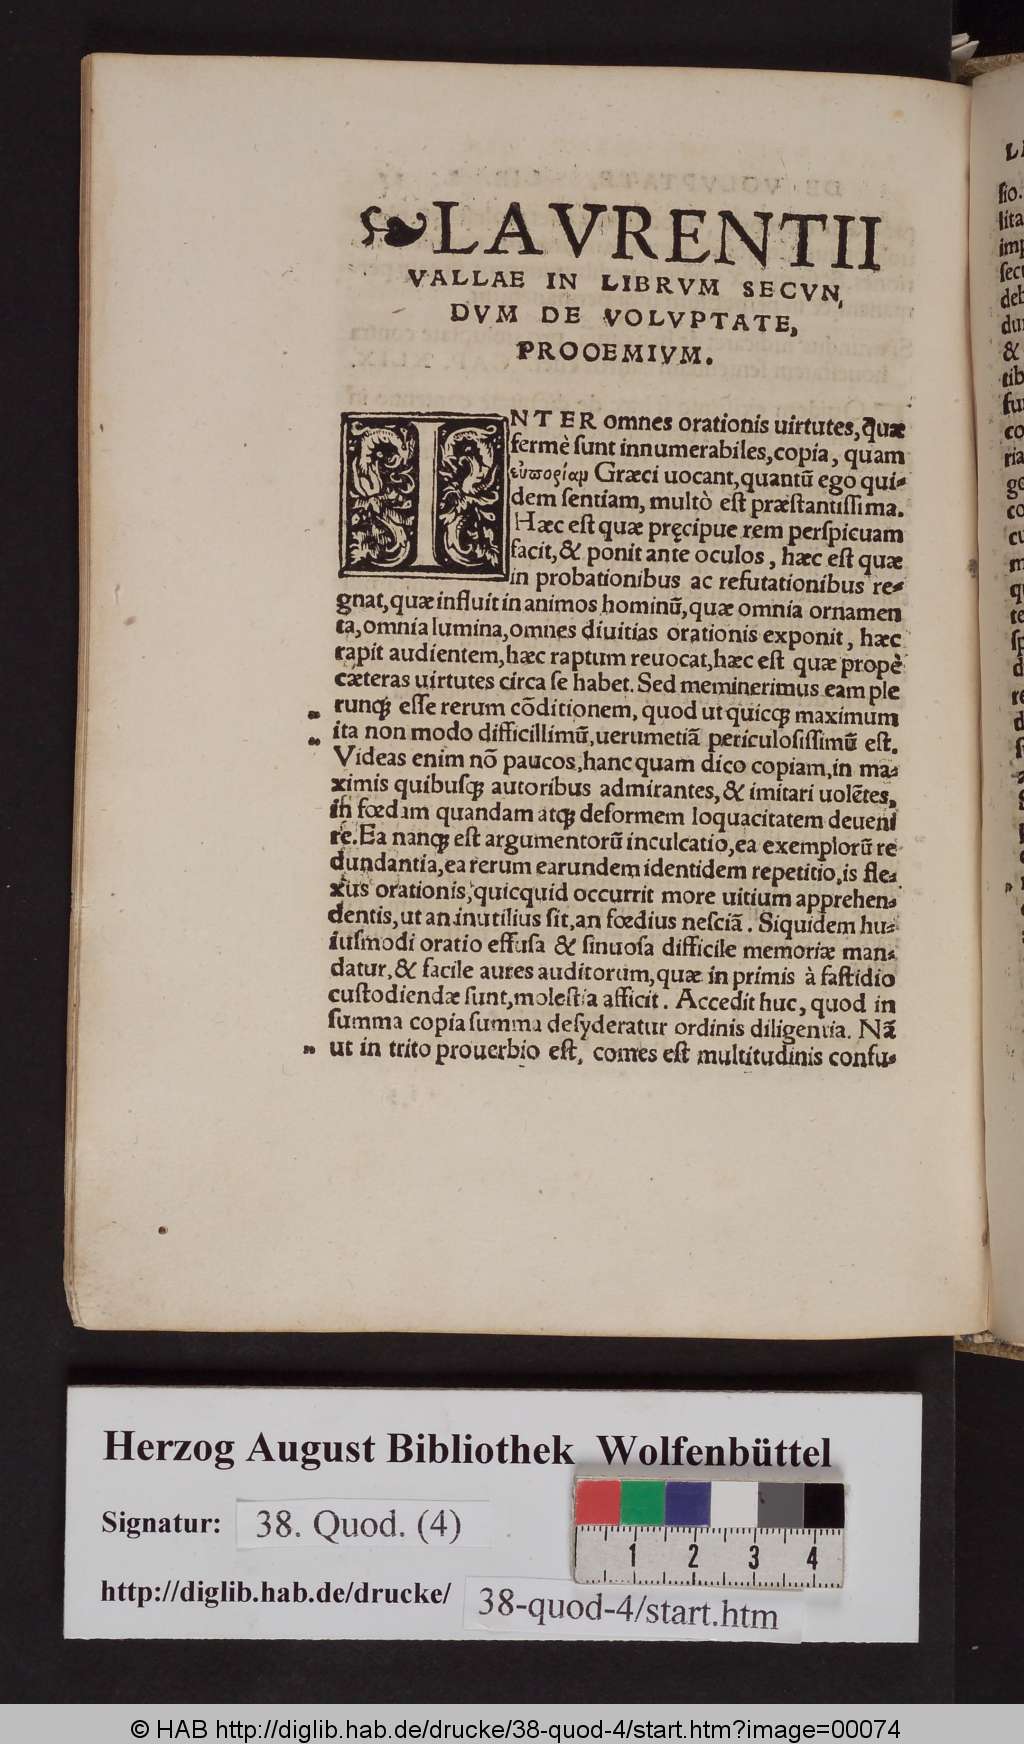 ❧ LAVRENTII
VALLAE IN LIBRVM SECVN,
DVM DE VOLVPTATE,
PROOEMIVM.
INTER omnes orationis uirtutes, quæ
fermè sunt innumerabiles, copia, quam
εὐπορίαμ Græci uocant, quantũ ego qui-
dem sentiam, multò est præstantissima.
Hæc est quæ pręcipue rem perspicuam
facit, & ponit ante oculos, hæc est quæ
in probationibus ac refutationibus re-
gnat, quæ influit in animos hominũ, quæ omnia ornamen
ta, omnia lumina, omnes diuitias orationis exponit, hæc
rapit audientem, hæc raptum reuocat, hæc est quæ propè
cæteras uirtutes circa se habet. Sed meminerimus eam ple
runqꝫ esse rerum cõditionem, quod ut quicqꝫ maximum
ita non modo difficillimũ, uerumetiã periculosissimũ est.
Videas enim nõ paucos, hanc quam dico copiam, in ma-
ximis quibusqꝫ autoribus admirantes, & imitari uolẽtes,
in fœdam quandam atqꝫ deformem loquacitatem deueni
re. Ea nanqꝫ est argumentorũ inculcatio, ea exemplorũ re
dundantia, ea rerum earundem identidem repetitio, is fle-
xus orationis, quicquid occurrit more uitium apprehen-
dentis, ut an inutilius sit, an fœdius nesciã. Siquidem hu-
iusmodi oratio effusa & sinuosa difficile memoriæ man-
datur, & facile aures auditorum, quæ in primis à fastidio
custodiendæ sunt, molestia afficit. Accedit huc, quod in
summa copia summa desyderatur ordinis diligentia. Nã
ut in trito prouerbio est, comes est multitudinis confu-
Herzog August Bibliothek Wolfenbüttel
Signatur: 38. Quod. (4)
http://diglib.hab.de/drucke/ 38-quod-4/start.htm
1 2 3 4
© HAB http://diglib.hab.de/drucke/38-quod-4/start.htm?image=00074